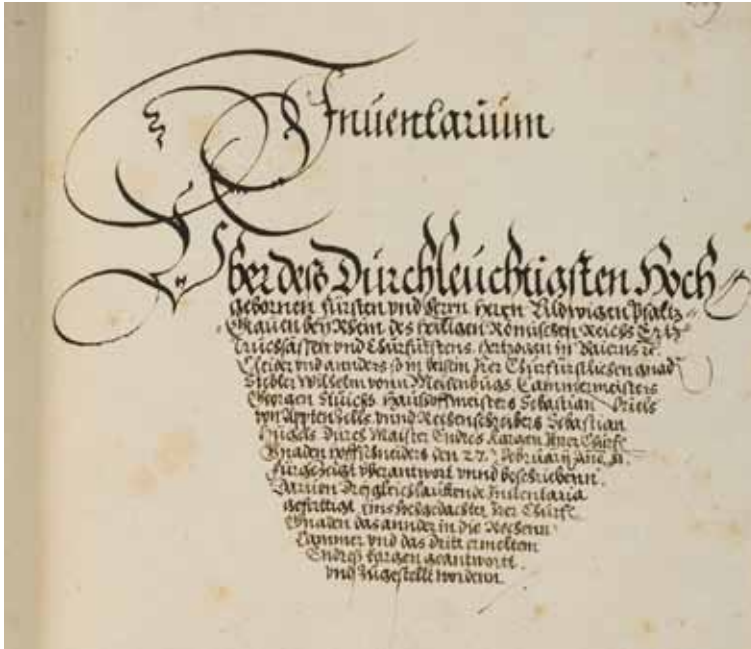 Inuentarium
Vber des Durchleuchtigsten Hoch
gebornen fürsten vnd Herrn Herrn Ludwigen Pfaltz
Grauen bey Rhein des Heiligen Römischen Reichs Ertz
Truchsassen vnd Churfürstens Hertzogen in Baierns
Cleider vnd annders so in beisein Irer Churfürstlichen gnad
Wilhelm vonn Meisenbugs Cammermeisters
Haushoffmeisters Sebastian
von Appten vnnd Rechenschreibers Sebastian
durch Maister Endres Kargen Irer Churf
Gnaden hoffschneiders den 27. Februarij
fürgezeigt vberantwort vnnd beschriebenn
Daruon dreygleichlauttende Inuentaria
gefertigt eins hochgedachter Irer Churf
Gnaden das annder in die Rechenn
Cammer vnd das dritt ermeltem
Endreß Kargen geantwort
vnd zugestellt wordenn